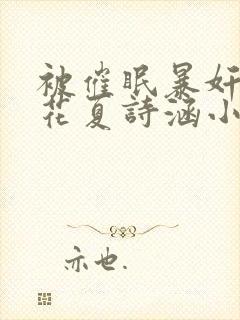 被催眠暴奸
花夏詩涵小
亦也.